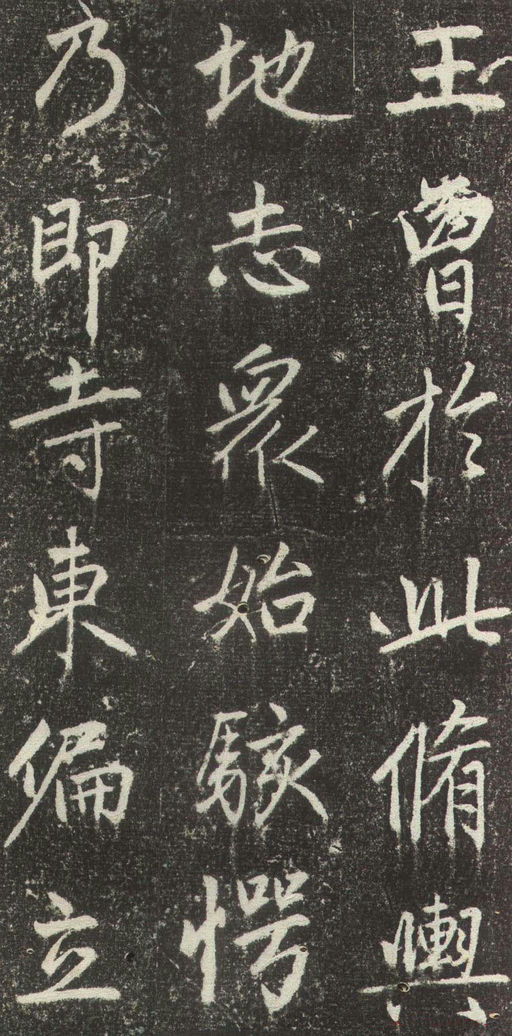 王曹於此脩輿
地志衆始駭愕
乃即寺東偏立